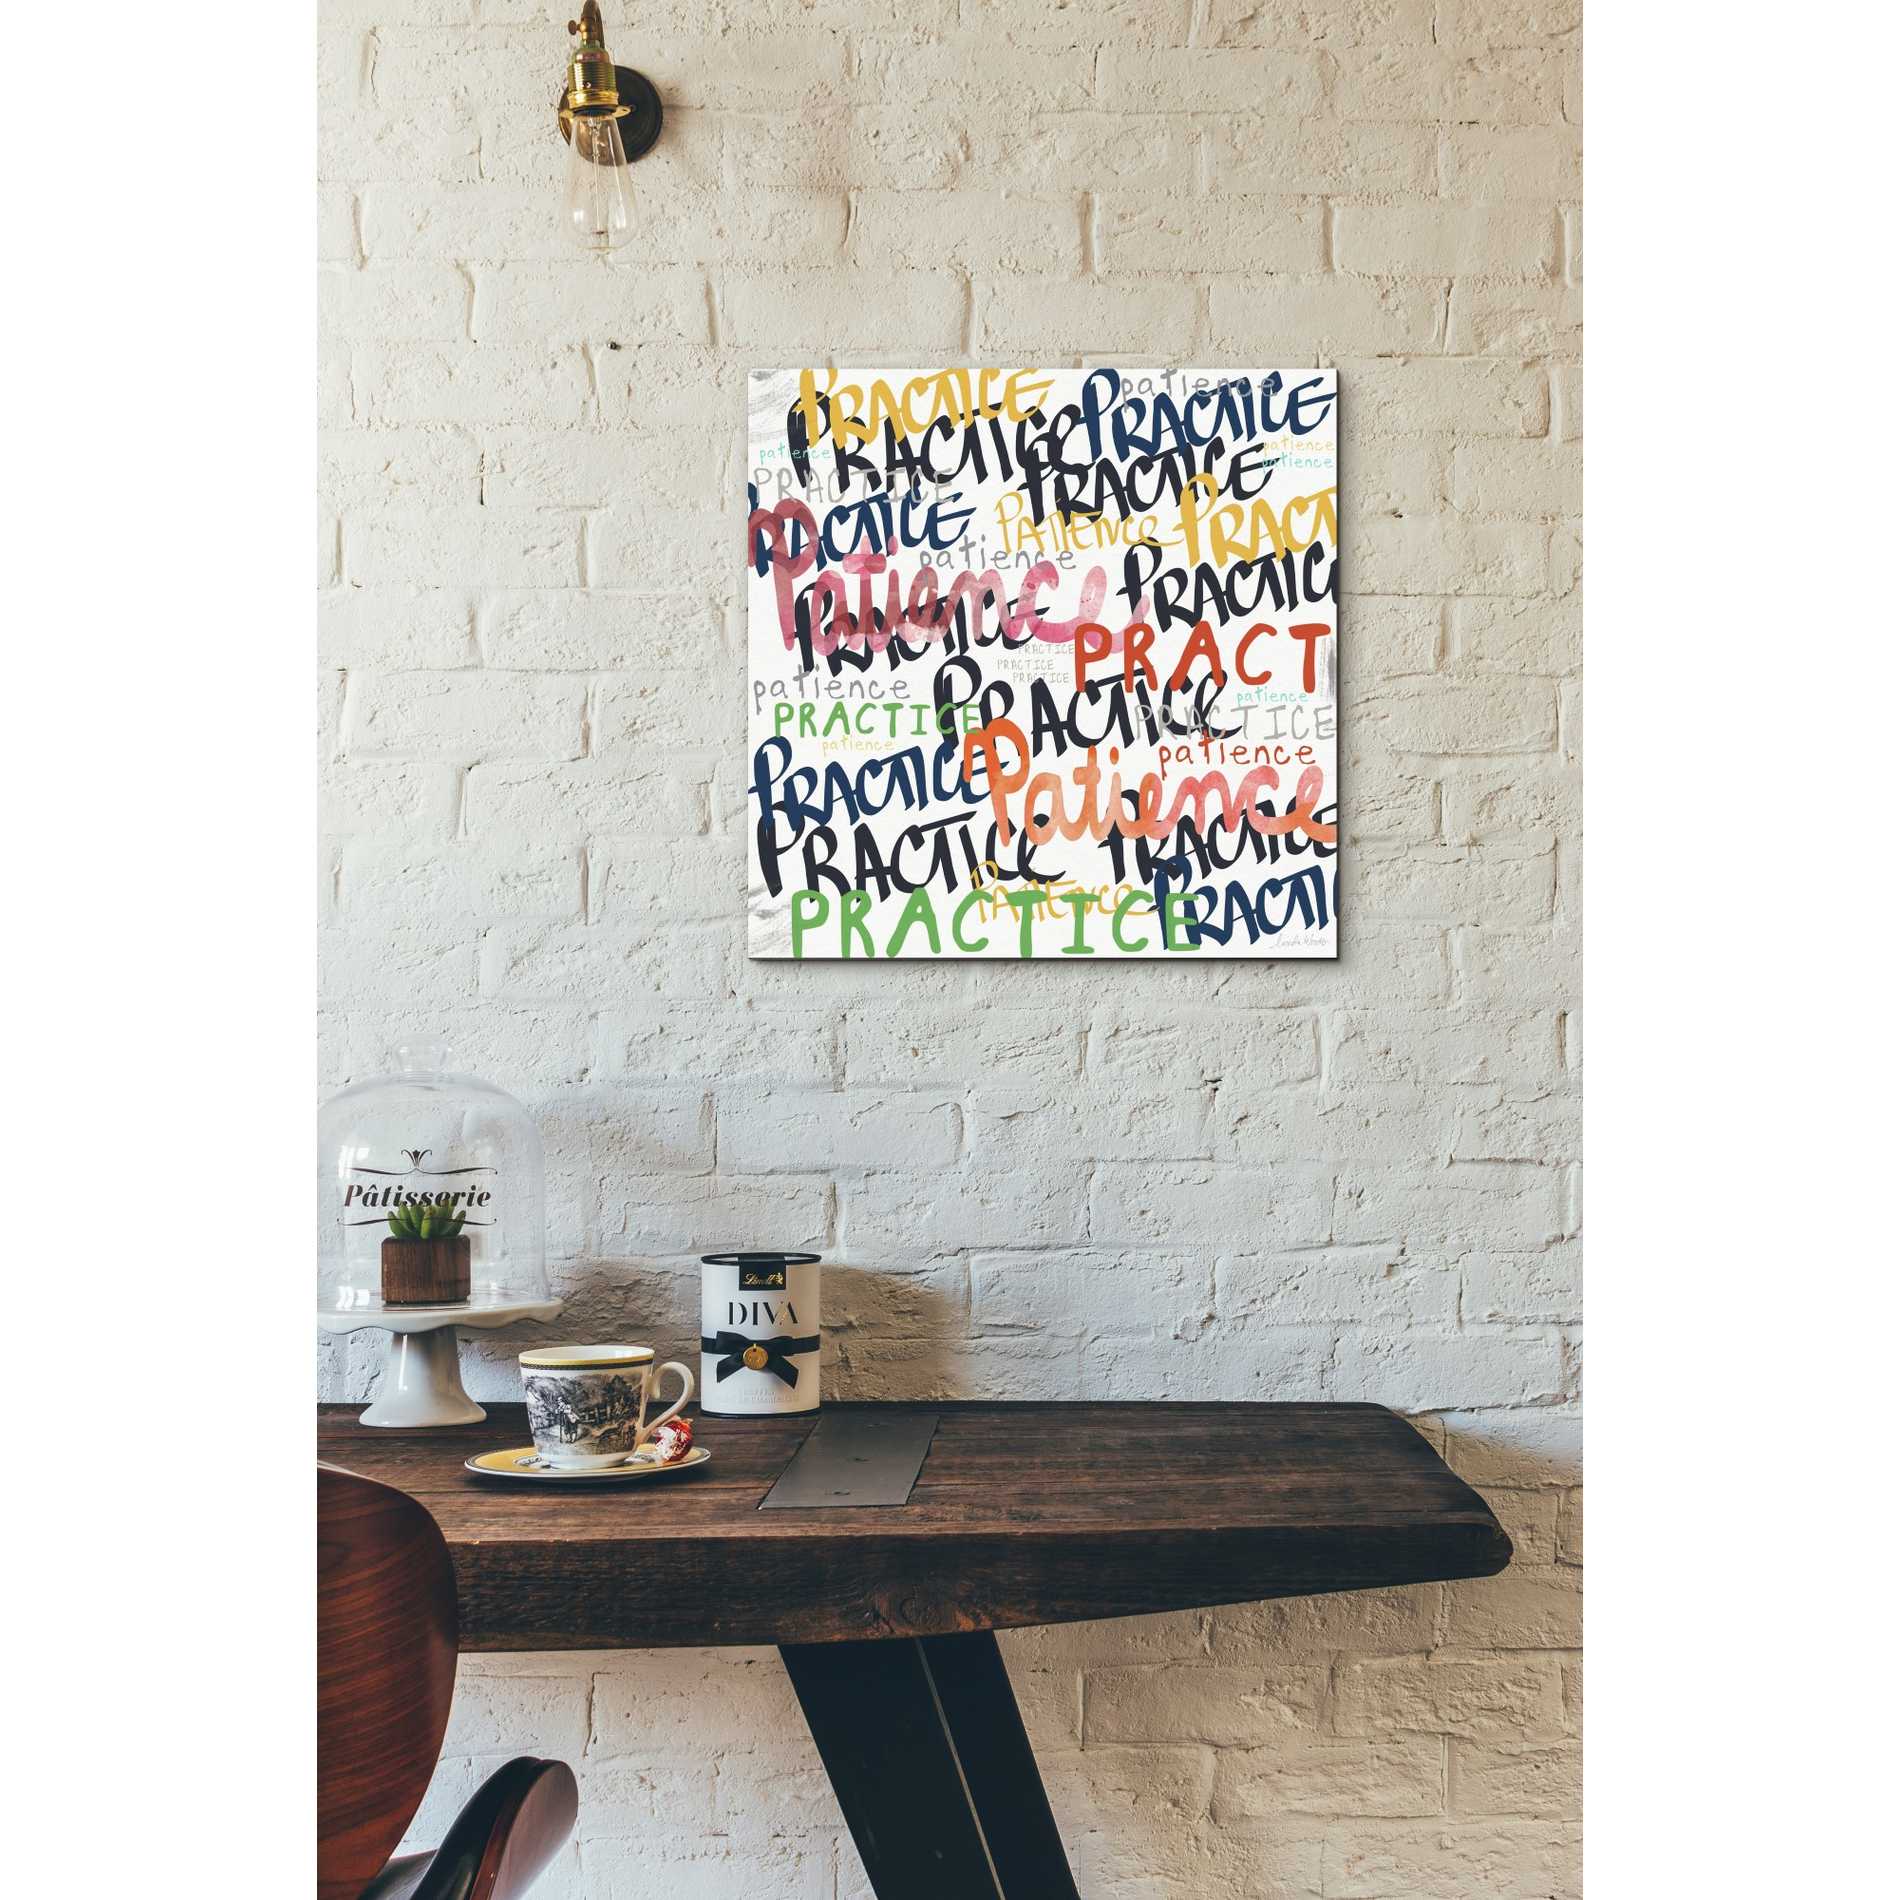 PRACTICE
patience
PRACTICE
PRACTICE
patience
patience
PRACTICE
patience
PRACTICE
PRACTICE
PATIENCE
PRACT
patience
Patience
PRACTIC
PRACTICE
PRACT
PRACTICE
PRACTICE
PRACTICE
patience
PRACTICE
patience
PRACTICE
PRACTICE
patience
patience
PRACTICE
Patience
PRACTICE
PRACTICE
PATIENCE
PRACTI
PRACTICE
Pâtisserie
Lindt
DIVA